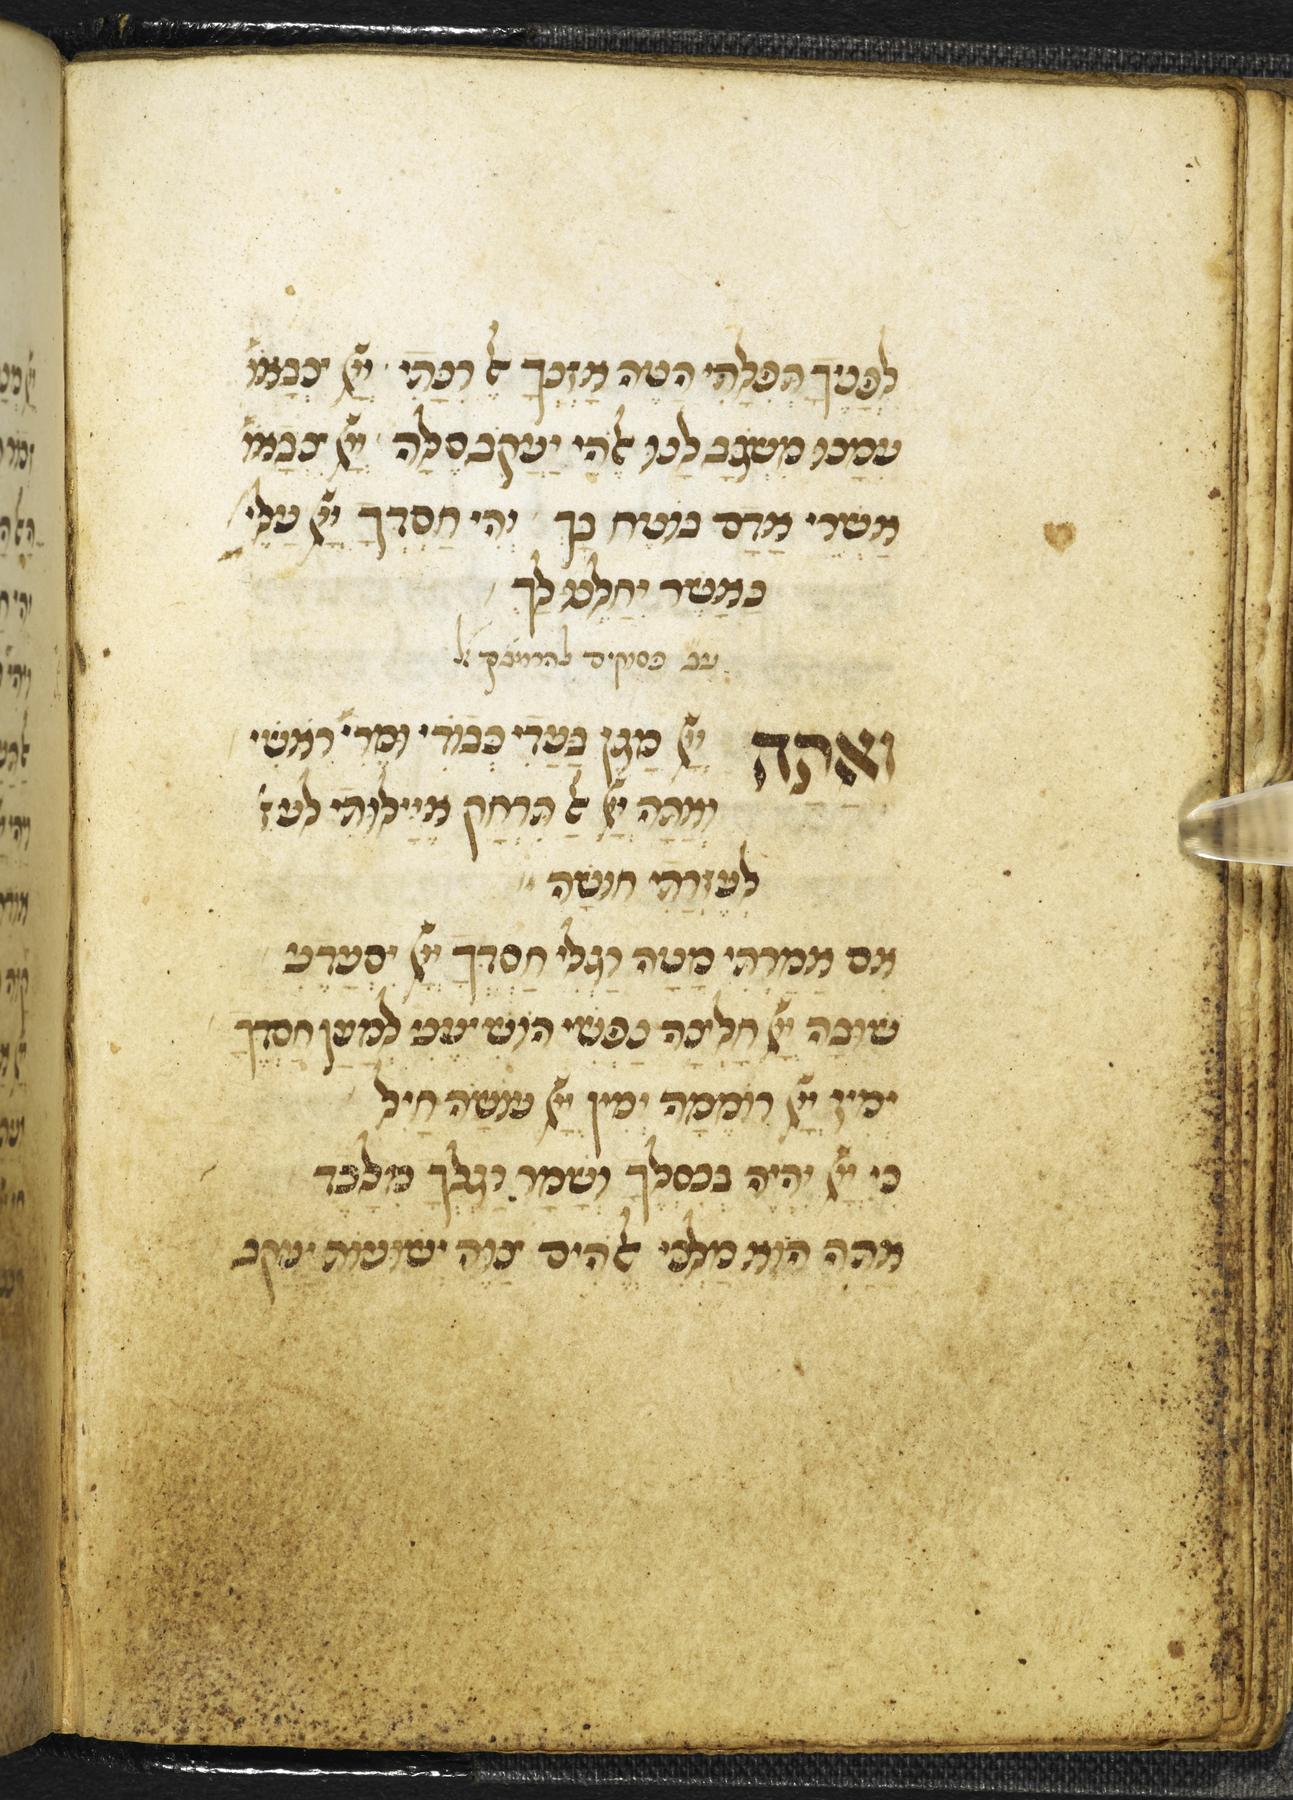 לְפָנֶיךָ תְפִלָּתִי הַטֵּה אָזְנְךָ לְרִנָּתִי יְיָ צְבָאוֹ
עִמָּנוּ מִשְׂגָּב לָנוּ אלֹהֵי יַעֲקֹב סֶלָה יְיָ צְבָאוֹ
אַשְׁרֵי אָדָם בּוֹטֵחַ בָּךְ יְהִי חַסְדְּךָ יְיָ עָלֵי
כַּאֲשֶׁר יִחַלְנוּ לָךְ
עב פסוקים
וְאַתָּה יְיָ מָגֵן בַּעֲדִי כְּבוֹדִי וּמֵרִי רֹאשִׁי
וְאַתָּה יְיָ אַל תִּרְחָק אֱיָילוּתִי לְעֶז
לְעֶזְרָתִי חוּשָׁה
אִם אָמַרְתִּי מָטָה רַגְלִי חַסְדְּךָ יְיָ יִסְעָדֵנִי
שׁוּבָה יְיָ חַלְצָה נַפְשִׁי הוֹשִׁיעֵנִי לְמַעַן חַסְדֶּךָ
יְמִין יְיָ רוֹמֵמָה יְמִין יְיָ עוֹשָׂה חָיִל
כִּי יְיָ יִהְיֶה בְּכִסְלֶךָ וְשָׁמַר רַגְלְךָ מִלָּכֶד
אַתָּה הוּא מַלְכִּי אלֹהִים צַוֵּה יְשׁוּעוֹת יַעֲקֹב